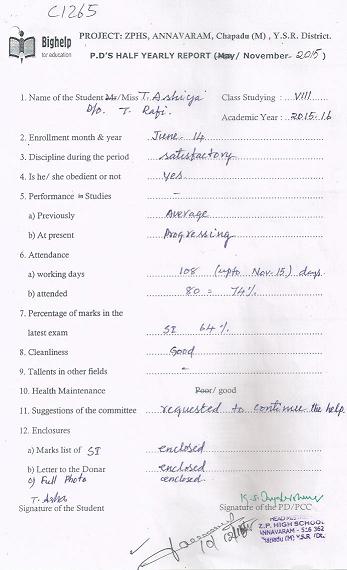 C1265
Bighelp
for education
PROJECT: ZPHS, ANNAVARAM, Chapadu (M) , Y.S.R. District.
P.D'S HALF YEARLY REPORT (May/ November- 2015 )
1. Name of the Student Ms/Miss T. Ashiya Class Studying : VIII
D/o. T. Rafi. Academic Year : 2015-16
2. Enrollment month & year June 14
3. Discipline during the period satisfactory
4. Is he/ she obedient or not yes
5. Performance in Studies -
a) Previously Average
b) At present Progressing
6. Attendance
a) working days 108 (upto Nov. 15) days
b) attended 80 = 74%
7. Percentage of marks in the
latest exam SI 64%
8. Cleanliness Good
9. Tallents in other fields -
10. Health Maintenance Poor/ good
11. Suggestions of the committee requested to continue the help.
12. Enclosures
a) Marks list of SI enclosed
b) Letter to the Donar enclosed
c) Full Photo enclosed.
T. Asha
Signature of the Student Signature of the PD/PCC
HEAD
Z.P. HIGH SCHOOL
ANNAVARAM - 516 362
Chapadu (M) Y.S.R (Dt.